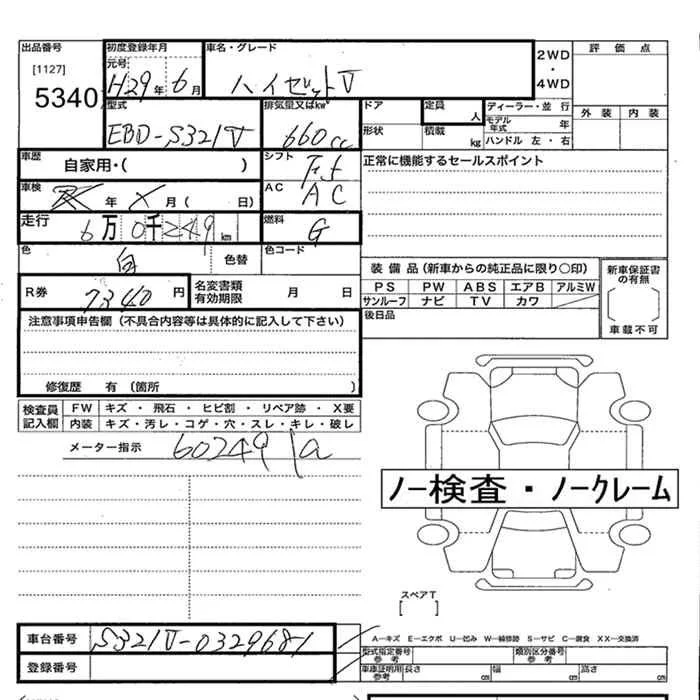 出品番号 初度登録年月 車名・グレード 2WD・4WD 評価点
[1127] 元号 H29年 6月 ハイゼットV
5340 型式 排気量又はkw ドア 定員 人 ディーラー・並行 外装 内装
EBD-S321V 660cc 形状 積載 kg モデル年式 年
ハンドル 左・右
車歴 自家用・( ) シフト F5 正常に機能するセールスポイント
車検 年 月( 日) AC AC
走行 6万0千249km 燃料 G
色 白 色替 色コード
装備品(新車からの純正品に限り○印) 新車保証書の有無
R券 7340円 名変書類有効期限 月 日 PS PW ABS エアB アルミW
サンルーフ ナビ TV カワ
注意事項申告欄(不具合内容等は具体的に記入して下さい) 後日品 車載不可
修復歴 有(箇所 )
検査員記入欄 FW キズ・飛石・ヒビ割・リペア跡・X要
内装 キズ・汚レ・コゲ・穴・スレ・キレ・破レ
メーター指示 60249
ノー検査・ノークレーム
スペアT
[ ]
車台番号 S321V-0329681
A-キズ E-エクボ U-凹み W-補修跡 S-サビ C-腐食 XX-交換済
登録番号 型式指定番号 参考 類別区分番号 参考
車庫証明用 参考 長さ cm 幅 cm 高さ cm